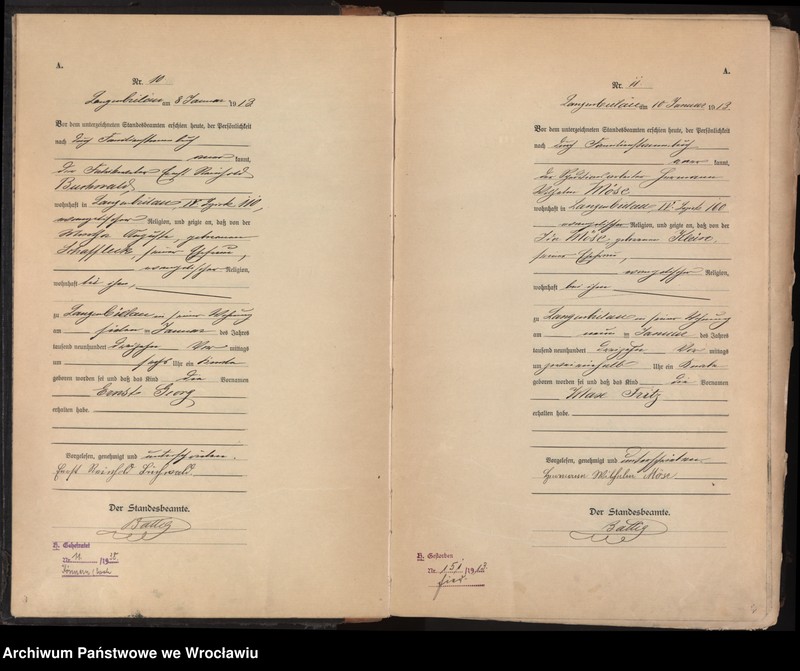 A.
Nr. 10
Langenbielau am 8 Januar 1913
Vor dem unterzeichneten Standesbeamten erschien heute, der Persönlichkeit
nach durch Familienstammbuch
kannt,
der Fabrikarbeiter Ernst Reinhold
Buchwald
wohnhaft in Langenbielau, IV. Bezirk 110,
evangelischer Religion, und zeigte an, daß von der
Martha Auguste, geborenen
seiner Ehefrau,
evangelischer Religion,
wohnhaft bei ihm,
zu Langenbielau in seiner Wohnung
am sieben ten Januar des Jahres
tausend neunhundert dreizehn Vor mittags
um sechs Uhr ein Knabe
geboren worden sei und daß das Kind die Vornamen
Georg
erhalten habe.
Vorgelesen, genehmigt und unterschrieben.
Ernst Reinhold Buchwald
Der Standesbeamte.
Battig
B. Geheiratet
Nr. 11 /19
A.
Nr. 11
Langenbielau am 10 Januar 1913.
Vor dem unterzeichneten Standesbeamten erschien heute, der Persönlichkeit
nach durch Familienstammbuch
kannt,
der arbeiter Hermann
Wilhelm Möse
wohnhaft in Langenbielau, IV. Bezirk 160
evangelischer Religion, und zeigte an, daß von der
Ida Möse, geborenen
seiner Ehefrau,
evangelischer Religion,
wohnhaft bei ihm
zu Langenbielau in seiner Wohnung
am neun ten Januar des Jahres
tausend neunhundert dreizehn Vor mittags
um zweieinhalb Uhr ein Knabe
geboren worden sei und daß das Kind die Vornamen
Max Fritz
erhalten habe.
Vorgelesen, genehmigt und unterschrieben
Hermann Wilhelm Möse
Der Standesbeamte.
Battig
B. Gestorben
Nr. 151 /1913
hier.
Archiwum Państwowe we Wrocławiu